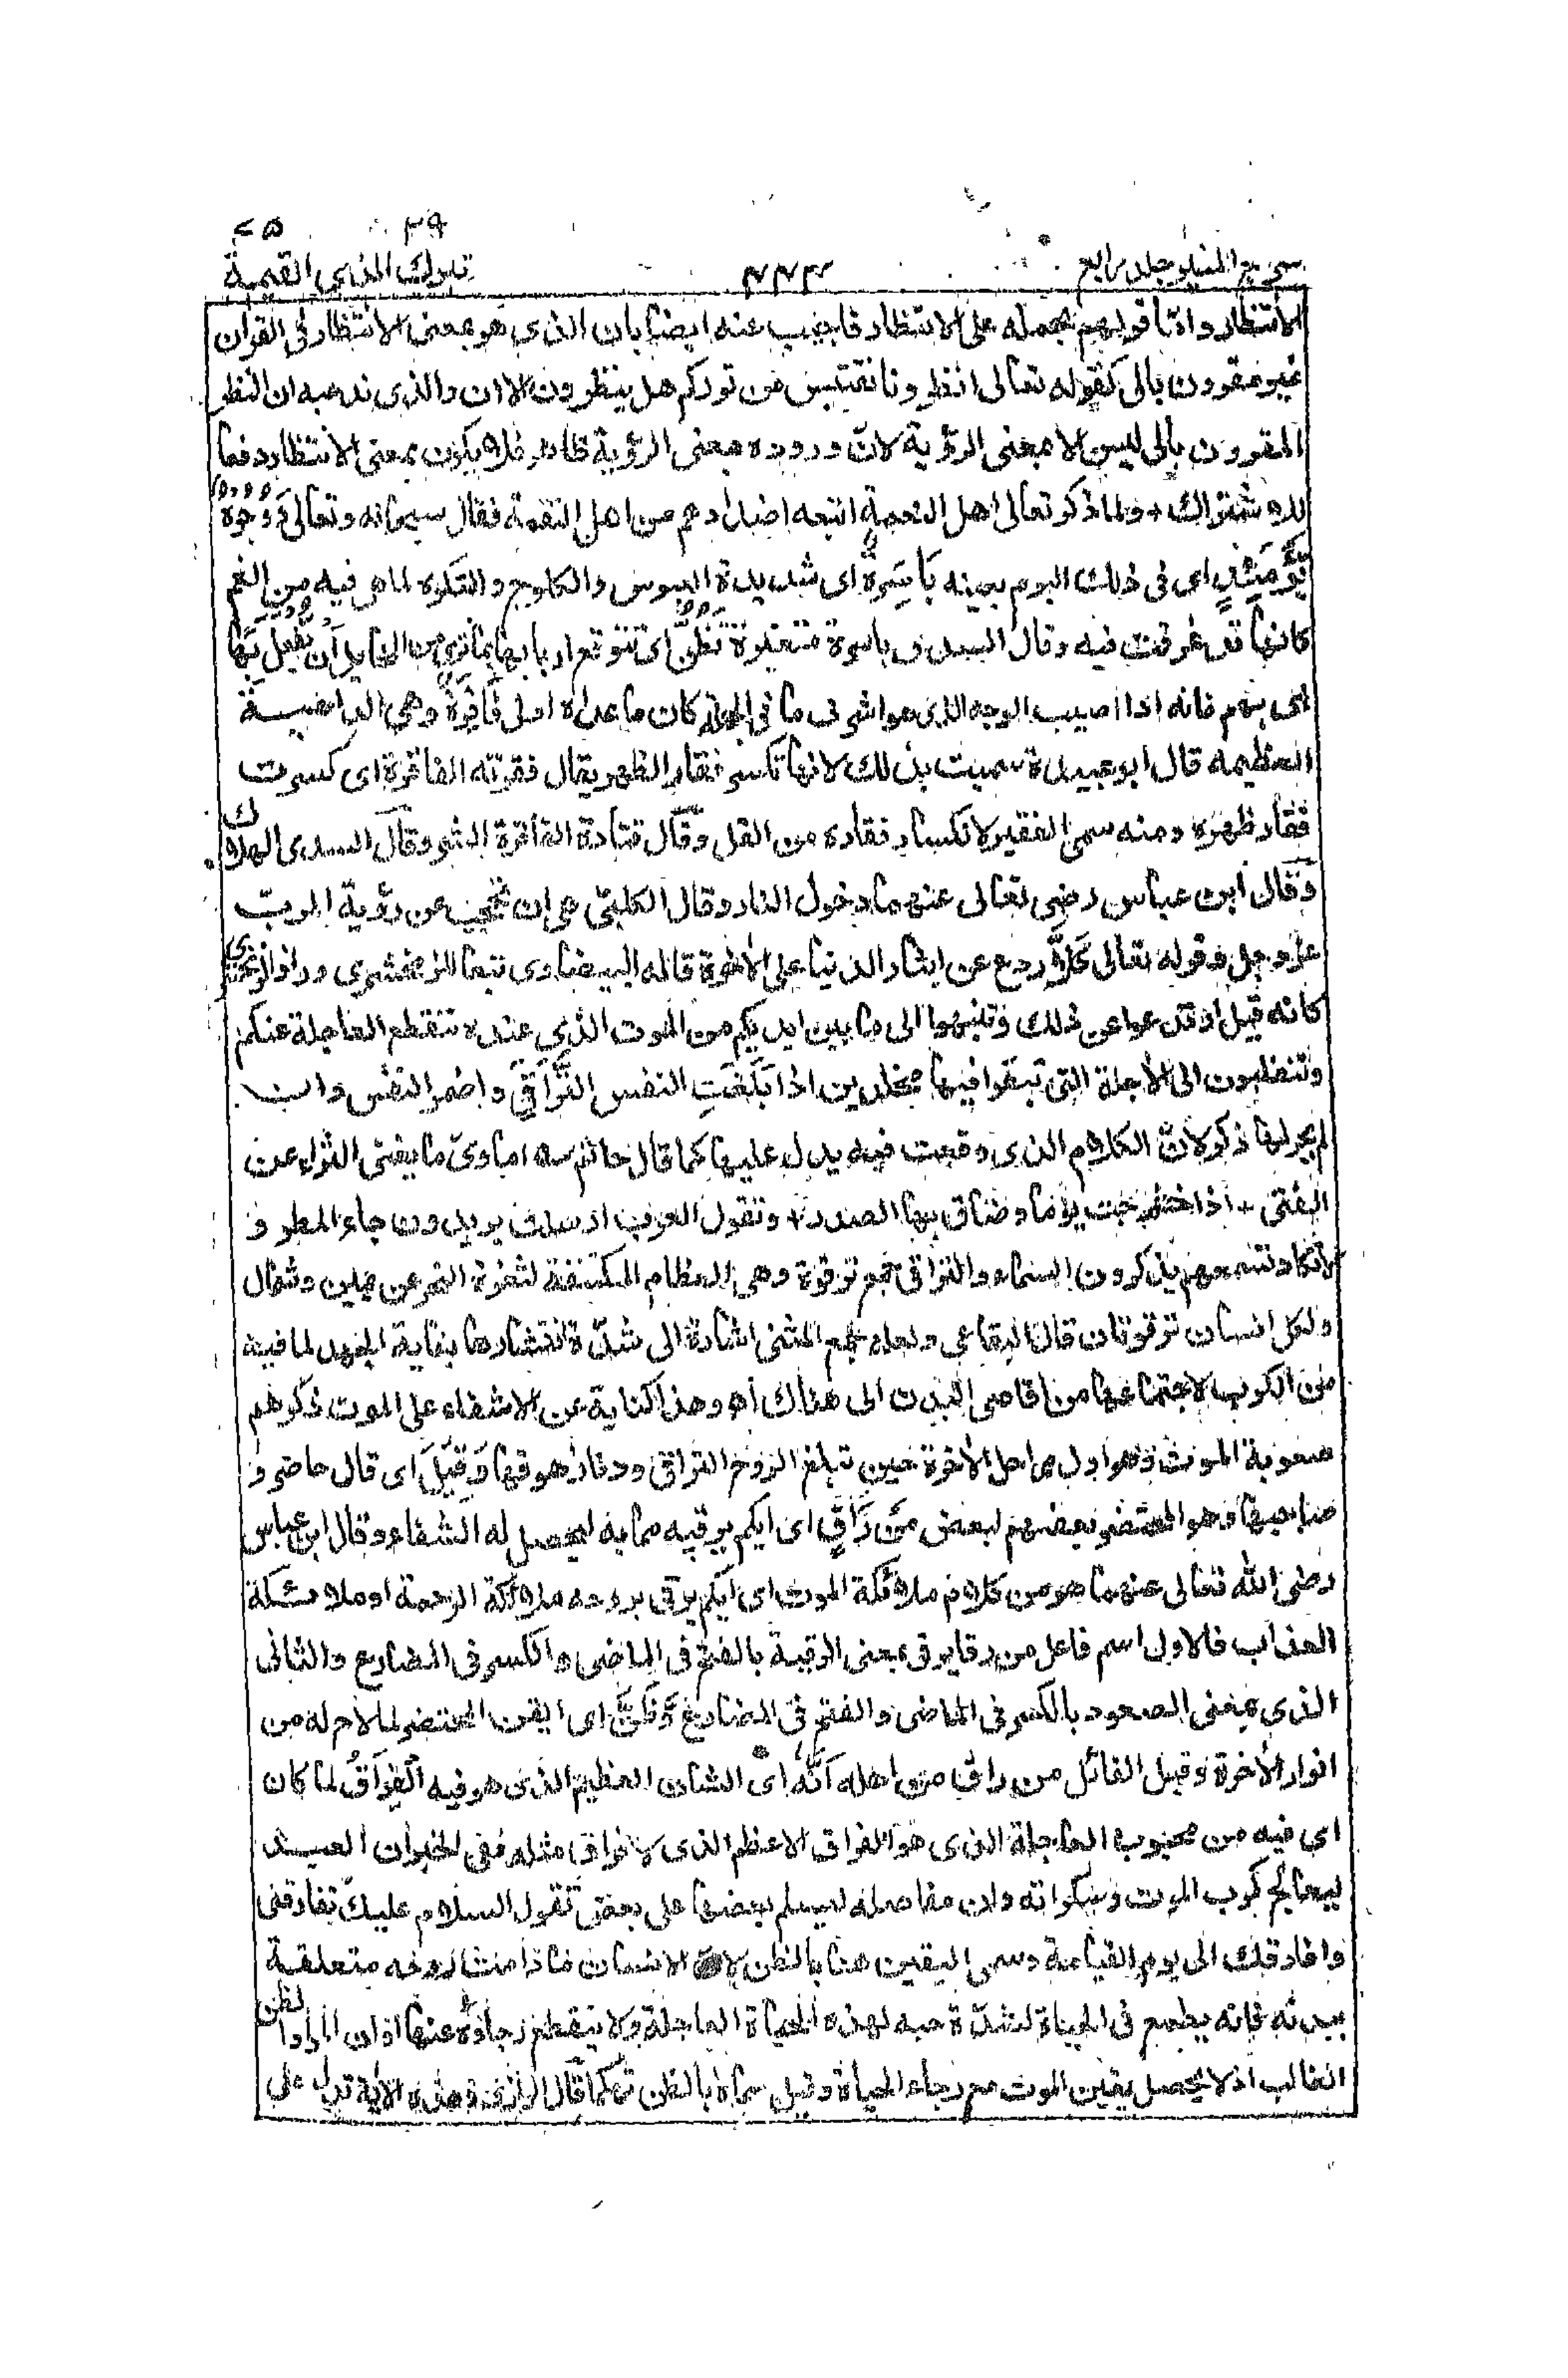 ٢٩ ٧٥
سراج المنير جلد رابع ٤٤٣ تبارك الذي القيمة
الانتظار واما قولهم بحمله على الانتظار فاجيب عنه ايضا بان الذى هو بمعنى الانتظار فى القران
غير مقرون بالى كقوله تعالى انظرونا نقتبس من نوركم هل ينظرون الا ان والذى ندعيه ان النظر
المقرون بالى ليس الا بمعنى الرؤية لان وروده بمعنى الرؤية ظاهر فلا يكون بمعنى الانتظار دفعا
للاشتراك ولما ذكر تعالى اهل النعمة اتبعه اضدادهم من اهل النقمة فقال سبحانه وتعالى وَوُجُوهٌ
يَّوْمَئِذٍ اى فى ذلك اليوم بعينه بَاسِرَةٌ اى شديدة العبوس والكلوح والتكره لما هى فيه من الغم
كانها قد غرقت فيه وقال السدى باسرة متغيرة تَظُنُّ اى تتوقع اربابها بما ترى من المخايل اَنْ يُّفْعَلَ بِهَا
اى بهم فانه اذا اصيب الوجه الذى هو اشرف ما فى الجملة كان ما عداه اولى فَاقِرَةٌ وهى الداهية
العظيمه قال ابو عبيدة سميت بذلك لانها تكسر فقار الظهر يقال فقرته الفاقرة اى كسرت
فقار ظهره ومنه سمى الفقير لانكسار فقاره من القل وقال قتادة الفاقرة الشر وقال السدى الهلاك
وقال ابن عباس رضى تعالى عنهما دخول النار وقال الكلبى هى ان تحجب عن رؤية الرب
عز وجل وقوله تعالى كَلَّا ردع عن ايثار الدنيا على الاخرة قاله البيضاوى تبعا للزمخشرى وزاد الزمخشرى
كانه قيل ارتدعوا عن ذلك وتنبهوا الى ما بين ايديكم من الموت الذي عنده تنقطع العاجلة عنكم
وتنقلبون الى الاجلة التى تبقوا فيها مخلدين اذا بَلَغَتِ النفس التَّرَاقِيَ واضمر النفس وان
لم يجر لها ذكر لان الكلام الذى وقعت فيه يدل عليها كما قال حاتم سه اماوى ما يغنى الثراء عن
الفتى اذا حشرجت يوما وضاق بها الصدر وتقول العرب ارسلت يريدون جاء المطر و
لا تكاد تسمعهم يذكرون السماء والتراقى جمع ترقوة وهى العظام المكتنفة لثغرة النحر عن يمين وشمال
ولكل انسان ترقوتان قال البقاعى ولعله جمع المثنى اشارة الى شدة انتشارها بغاية الجهد لما فيه
من الكرب لاجتماعها من اقاصى البدن الى هناك اه وهذا كناية عن الاشفاء على الموت ذكرهم
صعوبة الموت وهو اول مراحل الاخرة حين تبلغ الروح التراقى ودنا زهوقها وَقِيْلَ اى قال حاضرو
صاحبها وهو المحتضر بعضهم لبعض مَنْ رَاقٍ اى ايكم يرقيه مما به ليحصل له الشفاء وقال ابن عباس
رضى الله تعالى عنهما هو من كلام ملائكة الموت اى ايكم يرقى بروحه ملائكة الرحمة او ملائكة
العذاب فالاول اسم فاعل من رقا يرقى بمعنى الرقية بالفتح فى الماضى والكسر فى المضارع والثانى
الذى بمعنى الصعود بالكسر فى الماضى والفتح فى المضارع وَّظَنَّ اى ايقن المحتضر لما لاح له من
انوار الاخرة وقيل القائل من راق من اهله اَنَّهُ اى الشان العظيم الذى هو فيه الْفِرَاقُ لما كان
اى فيه من محبوب العاجلة الذى هو الفراق الاعظم الذى لا فراق مثله ففى الخبر ان العبد
ليعالج كرب الموت وسكراته وان مفاصله ليسلم بعضها على بعض تقول السلام عليك تفارقنى
وافارقك الى يوم القيامة وسمى اليقين هنا بالظن لان الانسان مادامت روحه متعلقة
ببدنه فانه يطمع فى الحياة لشدة حبه لهذه الحياة العاجلة ولا ينقطع رجاؤه عنها او ان المراد الظن
الغالب اذ لا يحصل يقين الموت مع رجاء الحياة وقيل سماه بالظن تهكما قال الرازى وهذه الاية تدل على